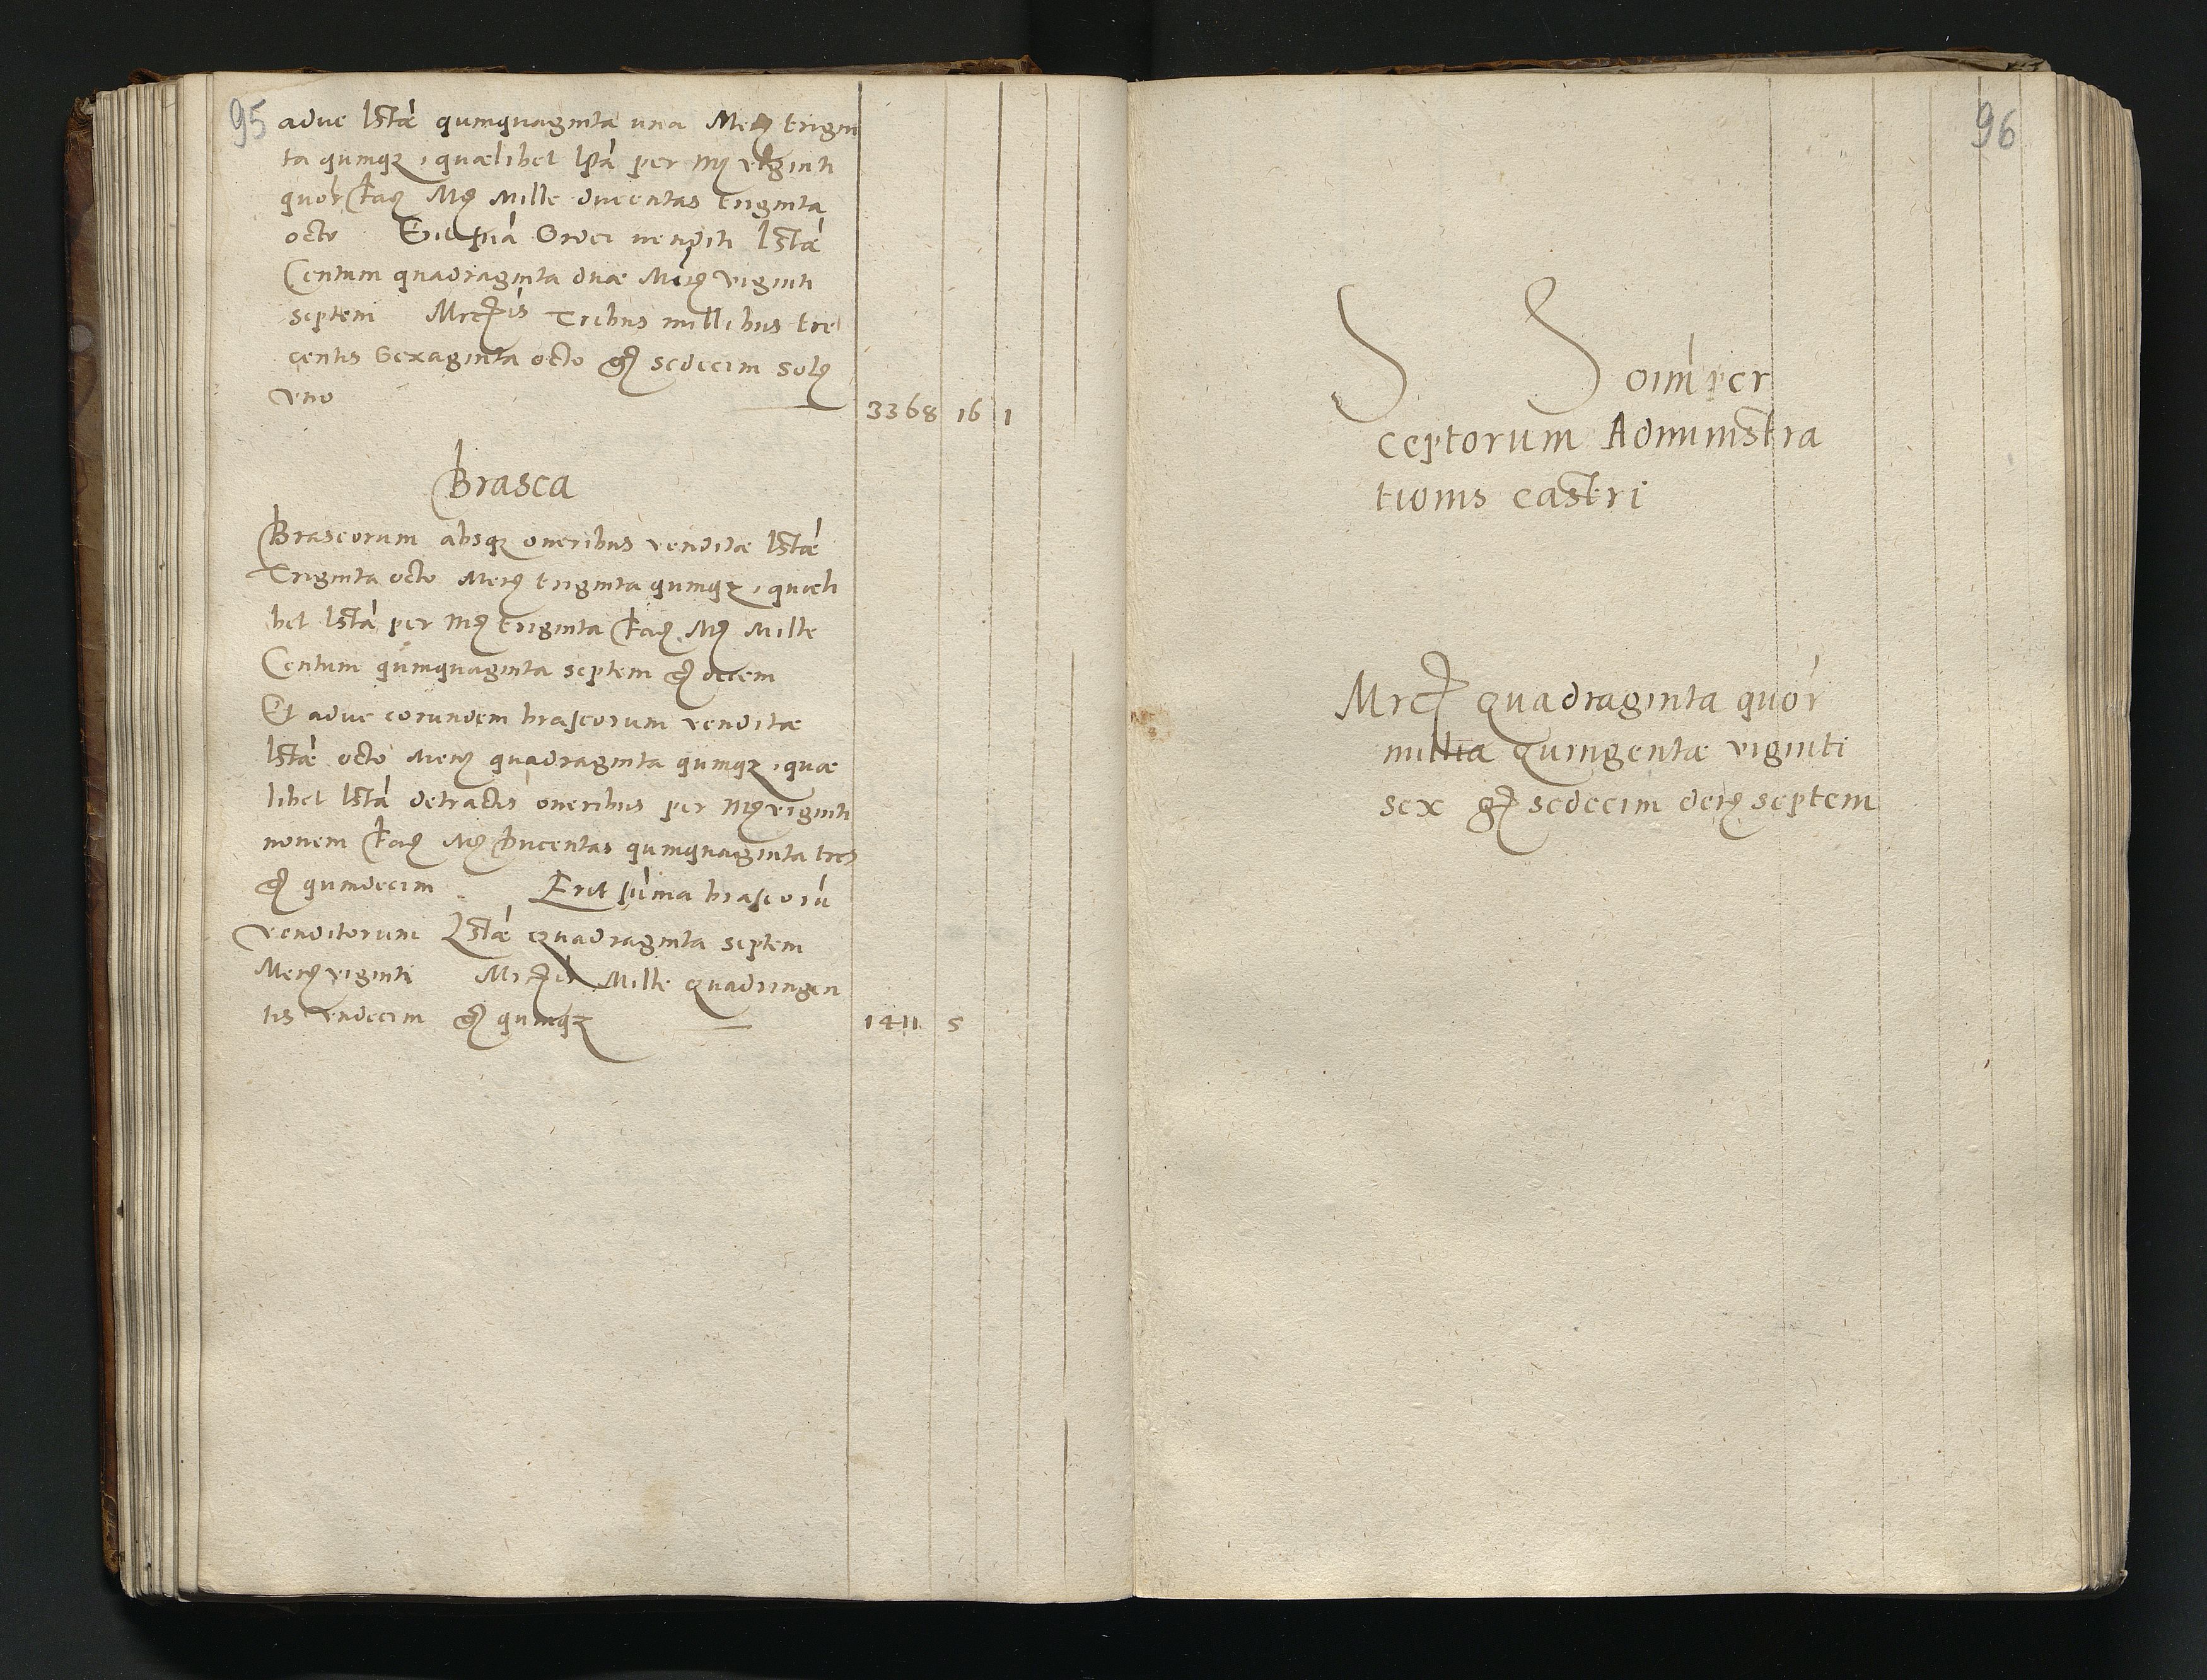 95
adue lstæ quinquaginta una Meñ trigin
ta quinqz, quælibet lsta per mȝ viginti
quor facȝ Mȝ Mille ducentas triginta
octo Erit suma Ordei venditi lstæ
Centum quadraginta duæ Menȝ viginti
septem Mrcȝis Tribus millibus tre
centis Sexaginta octo gȝ sedecim solȝ
vno 3368 16 1
Brasea
Braseorum absqz oneribus venditæ lstæ
Triginta octo Menȝ triginta quinqz, quæli
bet lsta per mȝ triginta facȝ Mȝ Mille
Centum quinquaginta septem gȝ decem
Et adue eorundem braseorum venditæ
lstæ octo Menȝ quadraginta quinqz, quæ
libet lsta detractis oneribus per mȝ viginti
novem facȝ Mȝ Ducentas quinquaginta tres
gȝ quindecim Erit suma braseorū
venditorum Lstæ quadraginta septem
Menȝ viginti Mrcȝis Mille quadringen
tis vndecim gȝ quinqz 1411 5
96
S S oim per
ceptorum Administra
tionis castri
Mrcȝ quadraginta quor
millia quingentæ viginti
sex gȝ sedecim denȝ septem